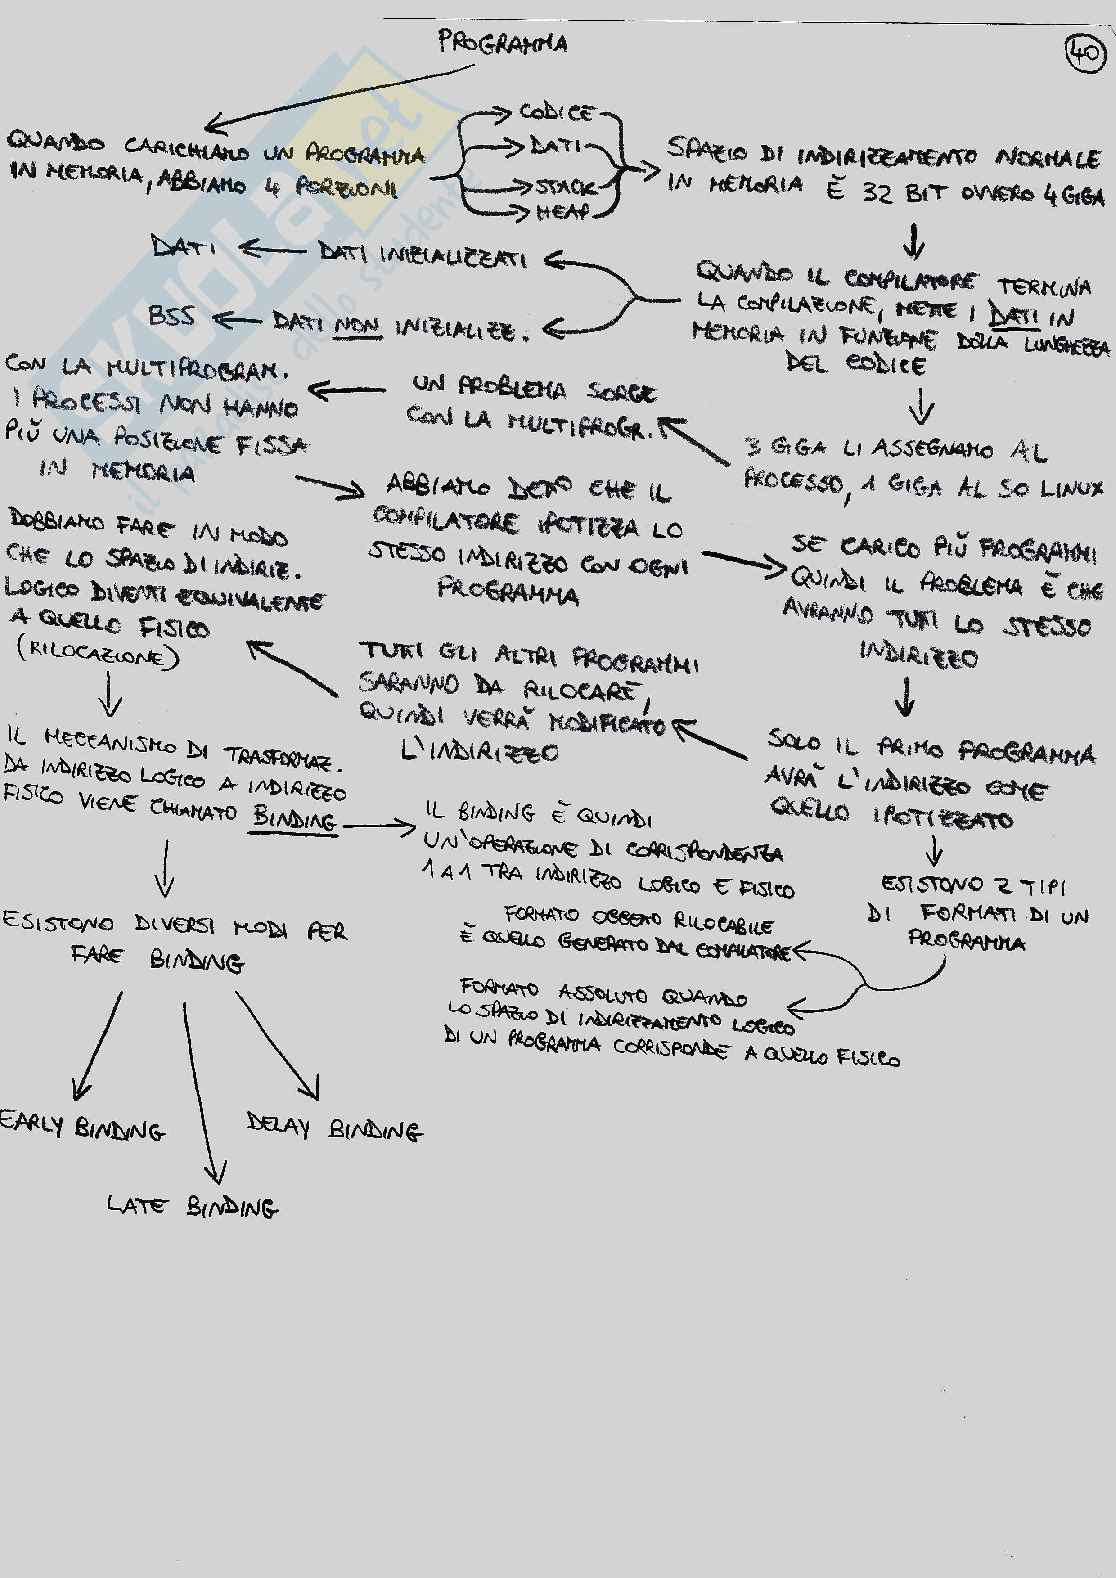 PROGRAMMA
40
QUANDO CARICHIAMO UN PROGRAMMA
IN MEMORIA, ABBIAMO 4 PORZIONI
CODICE
DATI
STACK
HEAP
SPAZIO DI INDIRIZZAMENTO NORMALE
IN MEMORIA È 32 BIT OVVERO 4 GIGA
QUANDO IL COMPILATORE TERMINA
LA COMPILAZIONE, METTE I DATI IN
MEMORIA IN FUNZIONE DELLA LUNGHEZZA
DEL CODICE
DATI INIZIALIZZATI
DATI
DATI NON INIZIALIZZ.
BSS
3 GIGA LI ASSEGNAMO AL
PROCESSO, 1 GIGA AL SO LINUX
UN PROBLEMA SORGE
CON LA MULTIPROGR.
CON LA MULTIPROGRAM.
I PROCESSI NON HANNO
PIÙ UNA POSIZIONE FISSA
IN MEMORIA
ABBIAMO DETTO CHE IL
COMPILATORE IPOTIZZA LO
STESSO INDIRIZZO CON OGNI
PROGRAMMA
SE CARICO PIÙ PROGRAMMI
QUINDI IL PROBLEMA È CHE
AVRANNO TUTTI LO STESSO
INDIRIZZO
SOLO IL PRIMO PROGRAMMA
AVRÀ L'INDIRIZZO COME
QUELLO IPOTIZZATO
TUTTI GLI ALTRI PROGRAMMI
SARANNO DA RILOCARE,
QUINDI VERRÀ MODIFICATO
L'INDIRIZZO
DOBBIAMO FARE IN MODO
CHE LO SPAZIO DI INDIRIZ.
LOGICO DIVENTI EQUIVALENTE
A QUELLO FISICO
(RILOCAZIONE)
IL MECCANISMO DI TRASFORMAZ.
DA INDIRIZZO LOGICO A INDIRIZZO
FISICO VIENE CHIAMATO BINDING
IL BINDING È QUINDI
UN'OPERAZIONE DI CORRISPONDENZA
1 A 1 TRA INDIRIZZO LOGICO E FISICO
ESISTONO 2 TIPI
DI FORMATI DI UN
PROGRAMMA
FORMATO OGGETTO RILOCABILE
È QUELLO GENERATO DAL COMPILATORE
FORMATO ASSOLUTO QUANDO
LO SPAZIO DI INDIRIZZAMENTO LOGICO
DI UN PROGRAMMA CORRISPONDE A QUELLO FISICO
ESISTONO DIVERSI MODI PER
FARE BINDING
EARLY BINDING
DELAY BINDING
LATE BINDING
SKUOLA.net